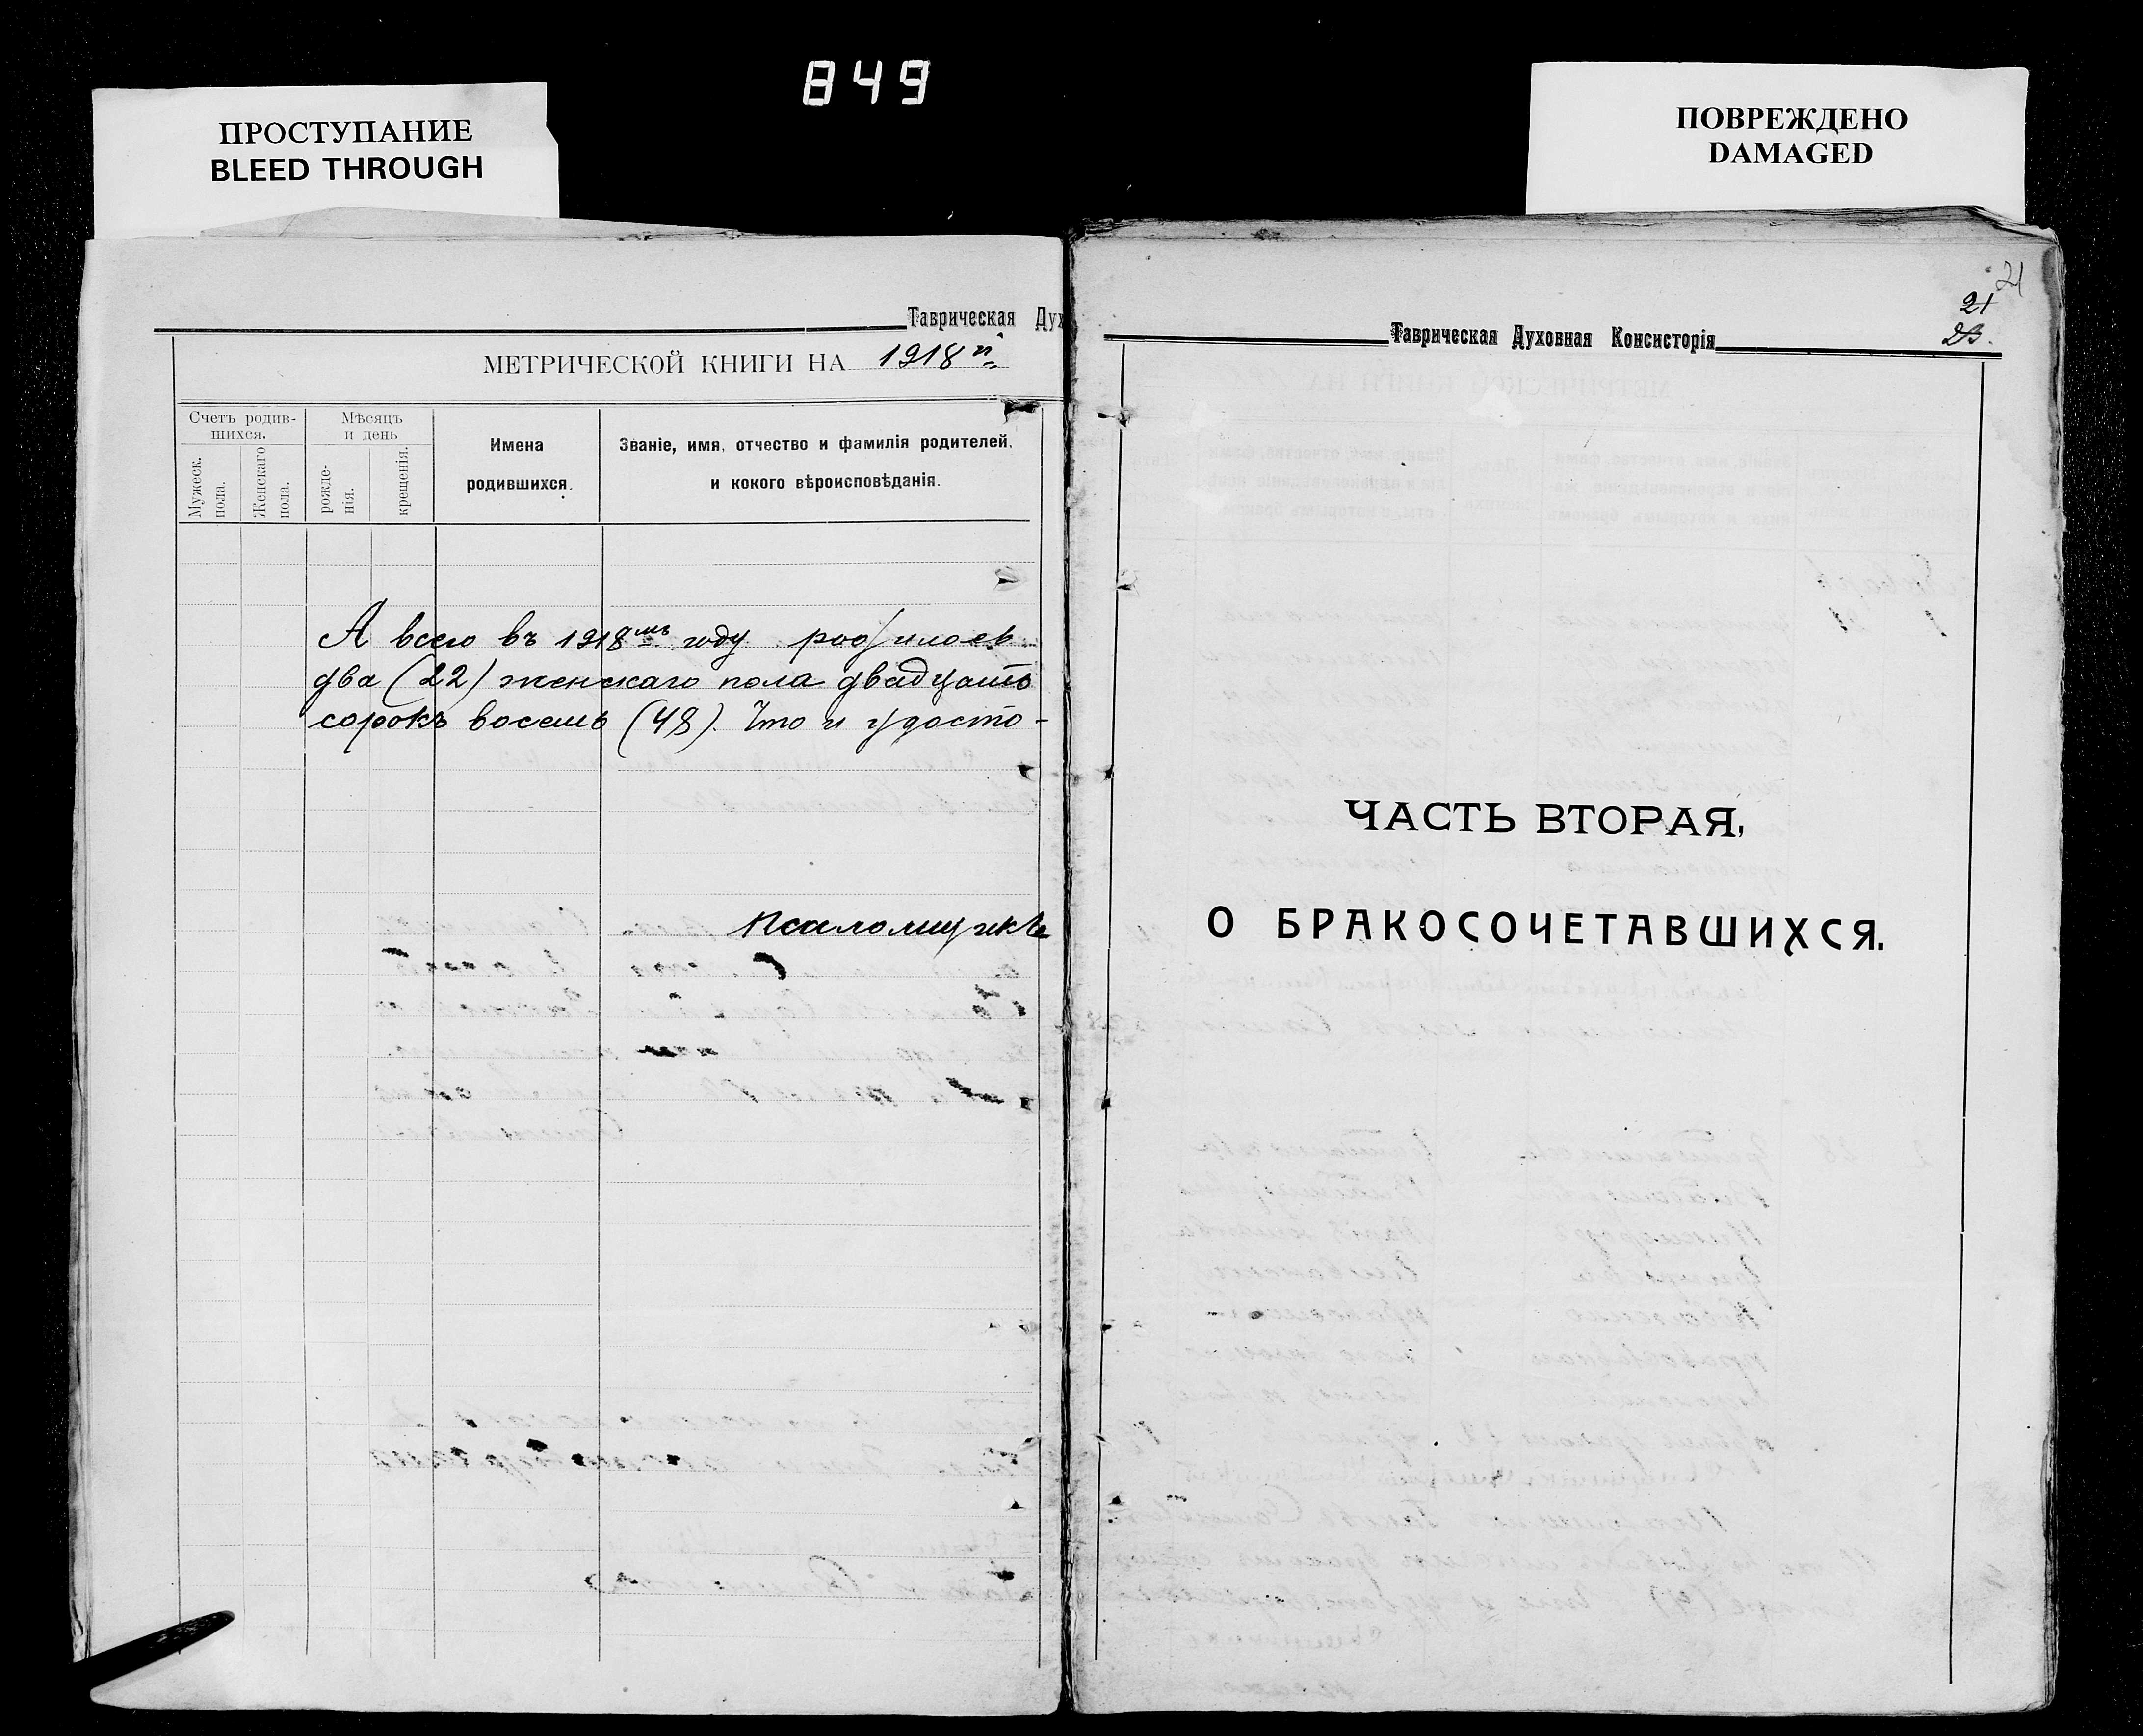 849
ПРОСТУПАНИЕ
BLEED THROUGH
ПОВРЕЖДЕНО
DAMAGED
Таврическая Дух
МЕТРИЧЕСКОЙ КНИГИ НА 1918 г.
Счетъ родив-
шихся.
Мужеск.
пола.
Женскаго
пола.
Мѣсяцъ
и день
рожде-
нія.
крещенія.
Имена
родившихся.
Званіе, имя, отчество и фамилія родителей,
и кокого вѣроисповѣданія.
А всего въ 1918мъ году родилось
два (22) женскаго пола двадцать
сорокъ восемь (48). Что и удосто-
Псаломщикъ
21
21
23.
Таврическая Духовная Консисторія
ЧАСТЬ ВТОРАЯ,
О БРАКОСОЧЕТАВШИХСЯ.